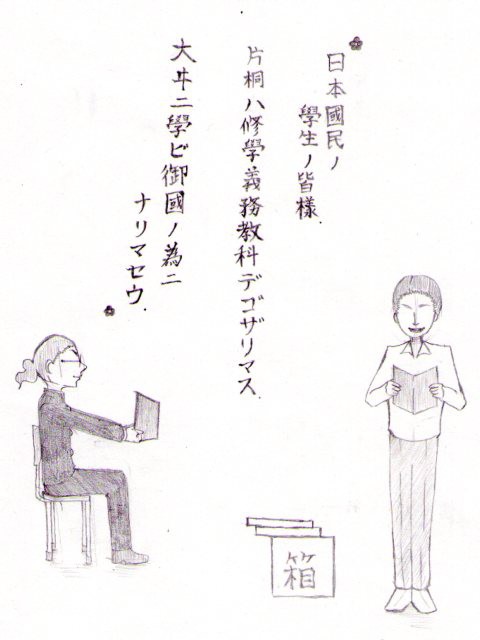 日本國民ノ
學生ノ皆様.
片桐ハ修學義務教科デゴザリマス.
大ヰニ學ビ御國ノ為ニ
ナリマセウ.
箱